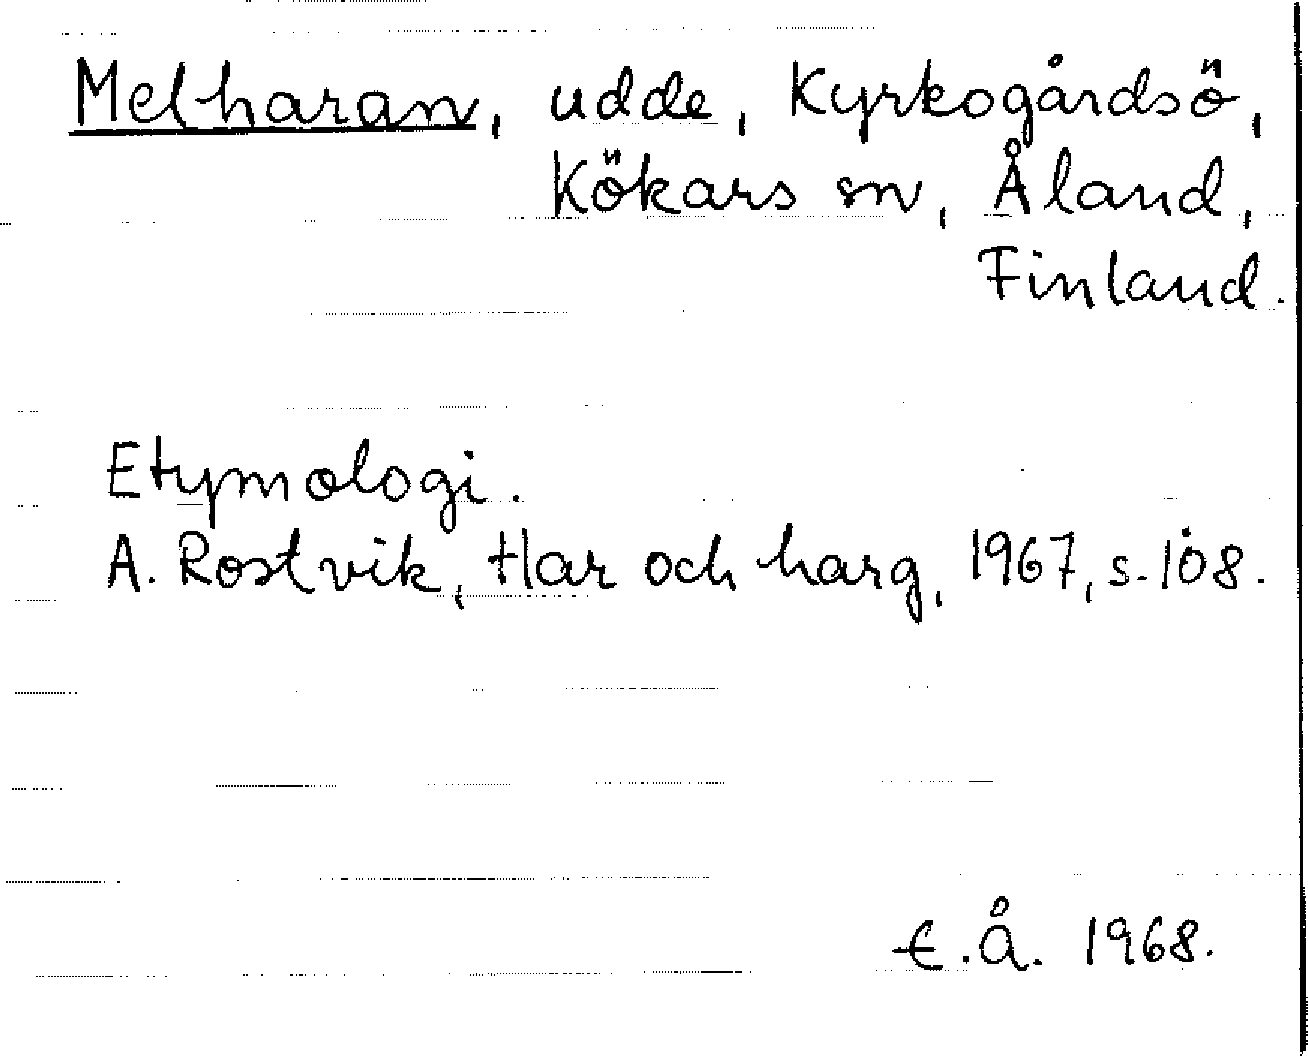 Melharan, udde, Kyrkogårdsö,
Kökars sn, Åland,
Finland.
Etymologi.
A. Rostvik, Har och harg, 1967, s. 108.
E.Å. 1968.